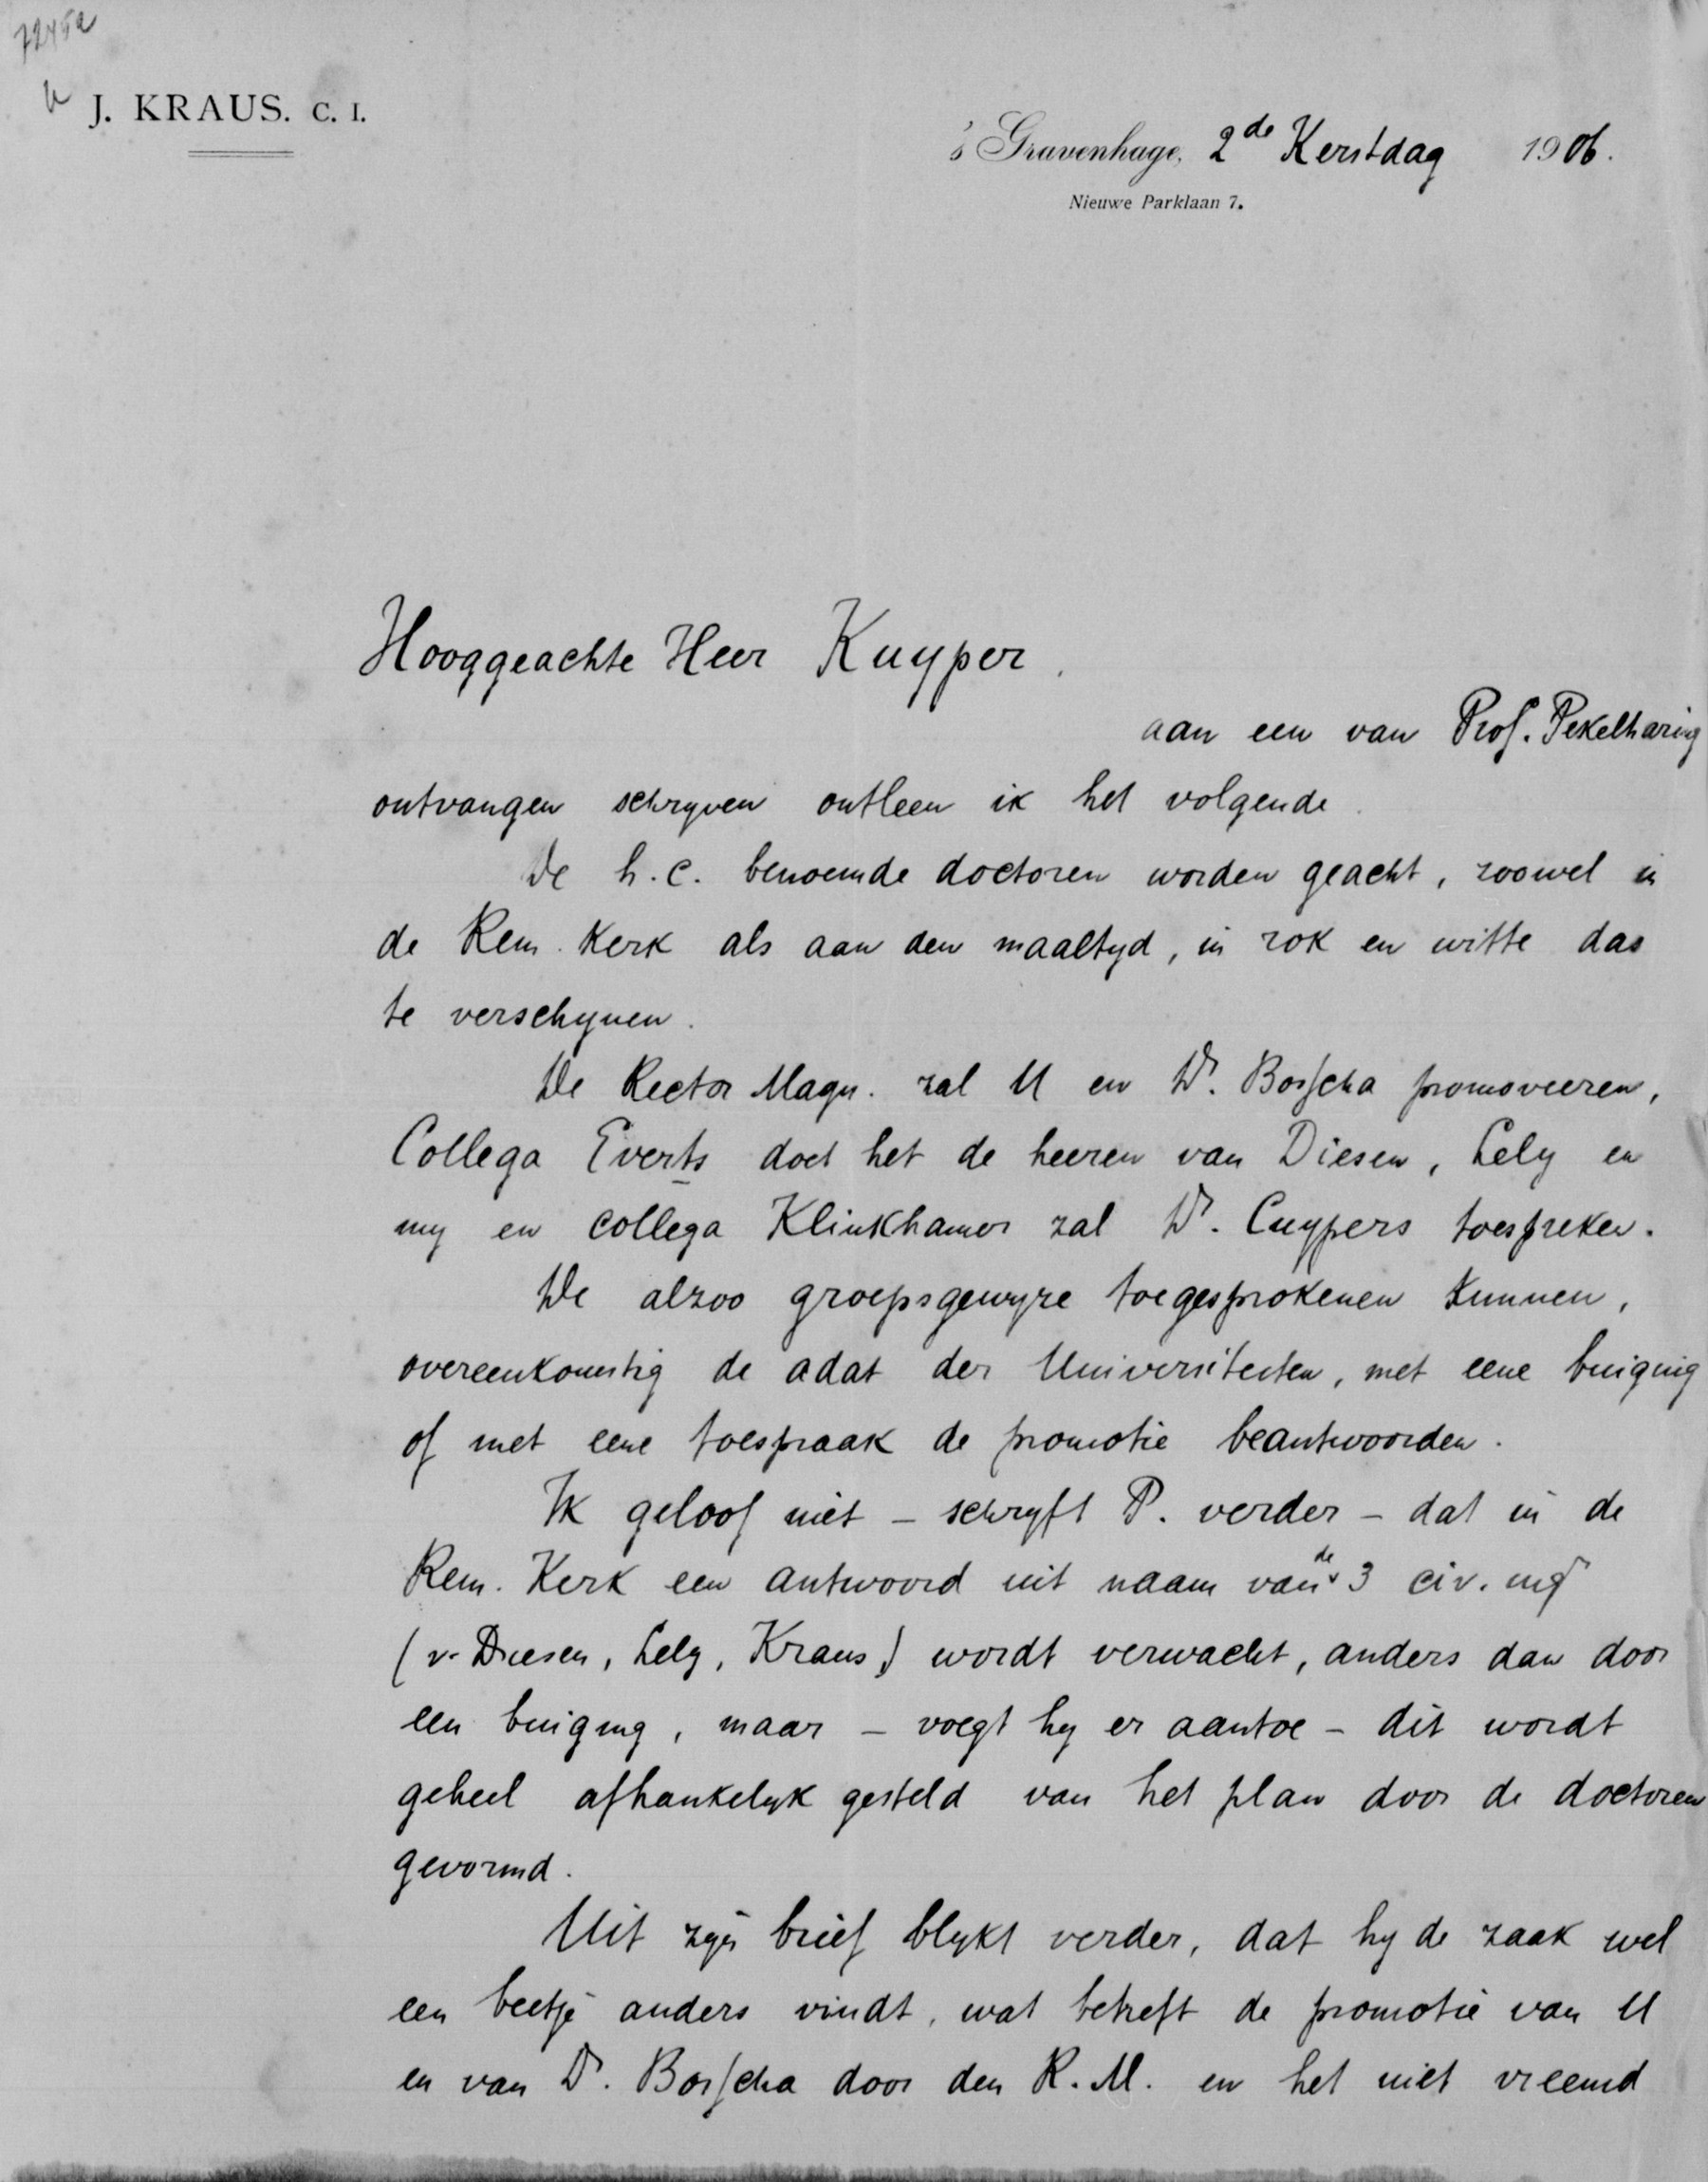 7245a
J. KRAUS. C. I.
's Gravenhage, 2de Kerstdag 1906.
Nieuwe Parklaan 7.
Hooggeachte Heer Kuyper.
aan een van Prof. Pekelharing
ontvangen schryven ontleen ik het volgende.
De h.c. benoemde doctoren worden geacht, zoowel in
de Rem. Kerk als aan den maaltyd, in rok en witte das
te verschynen.
De Rector Magn. zal U en Dr. Bosscha promoveeren,
Collega Everts doet het de heeren van Diesen, Lely en
my en collega Klinkhamer zal Dr. Cuypers toespreken.
De alzoo groepsgewyze toegesprokenen kunnen,
overeenkomstig de adat der Universiteiten, met eene buiging
of met eene toespraak de promotie beantwoorden.
Ik geloof niet – schryft P. verder – dat in de
Rem. Kerk een antwoord uit naam van de 3 civ. ingr
(v. Diesen, Lely, Kraus) wordt verwacht, anders dan door
een buiging, maar – voegt hy er aantoe – dit wordt
geheel afhankelyk gesteld van het plan door de doctoren
gevormd.
Uit zyn brief blykt verder, dat hy de zaak wel
een beetje anders vindt, wat betreft de promotie van U
en van Dr. Bosscha door den R.M. en het niet vreemd